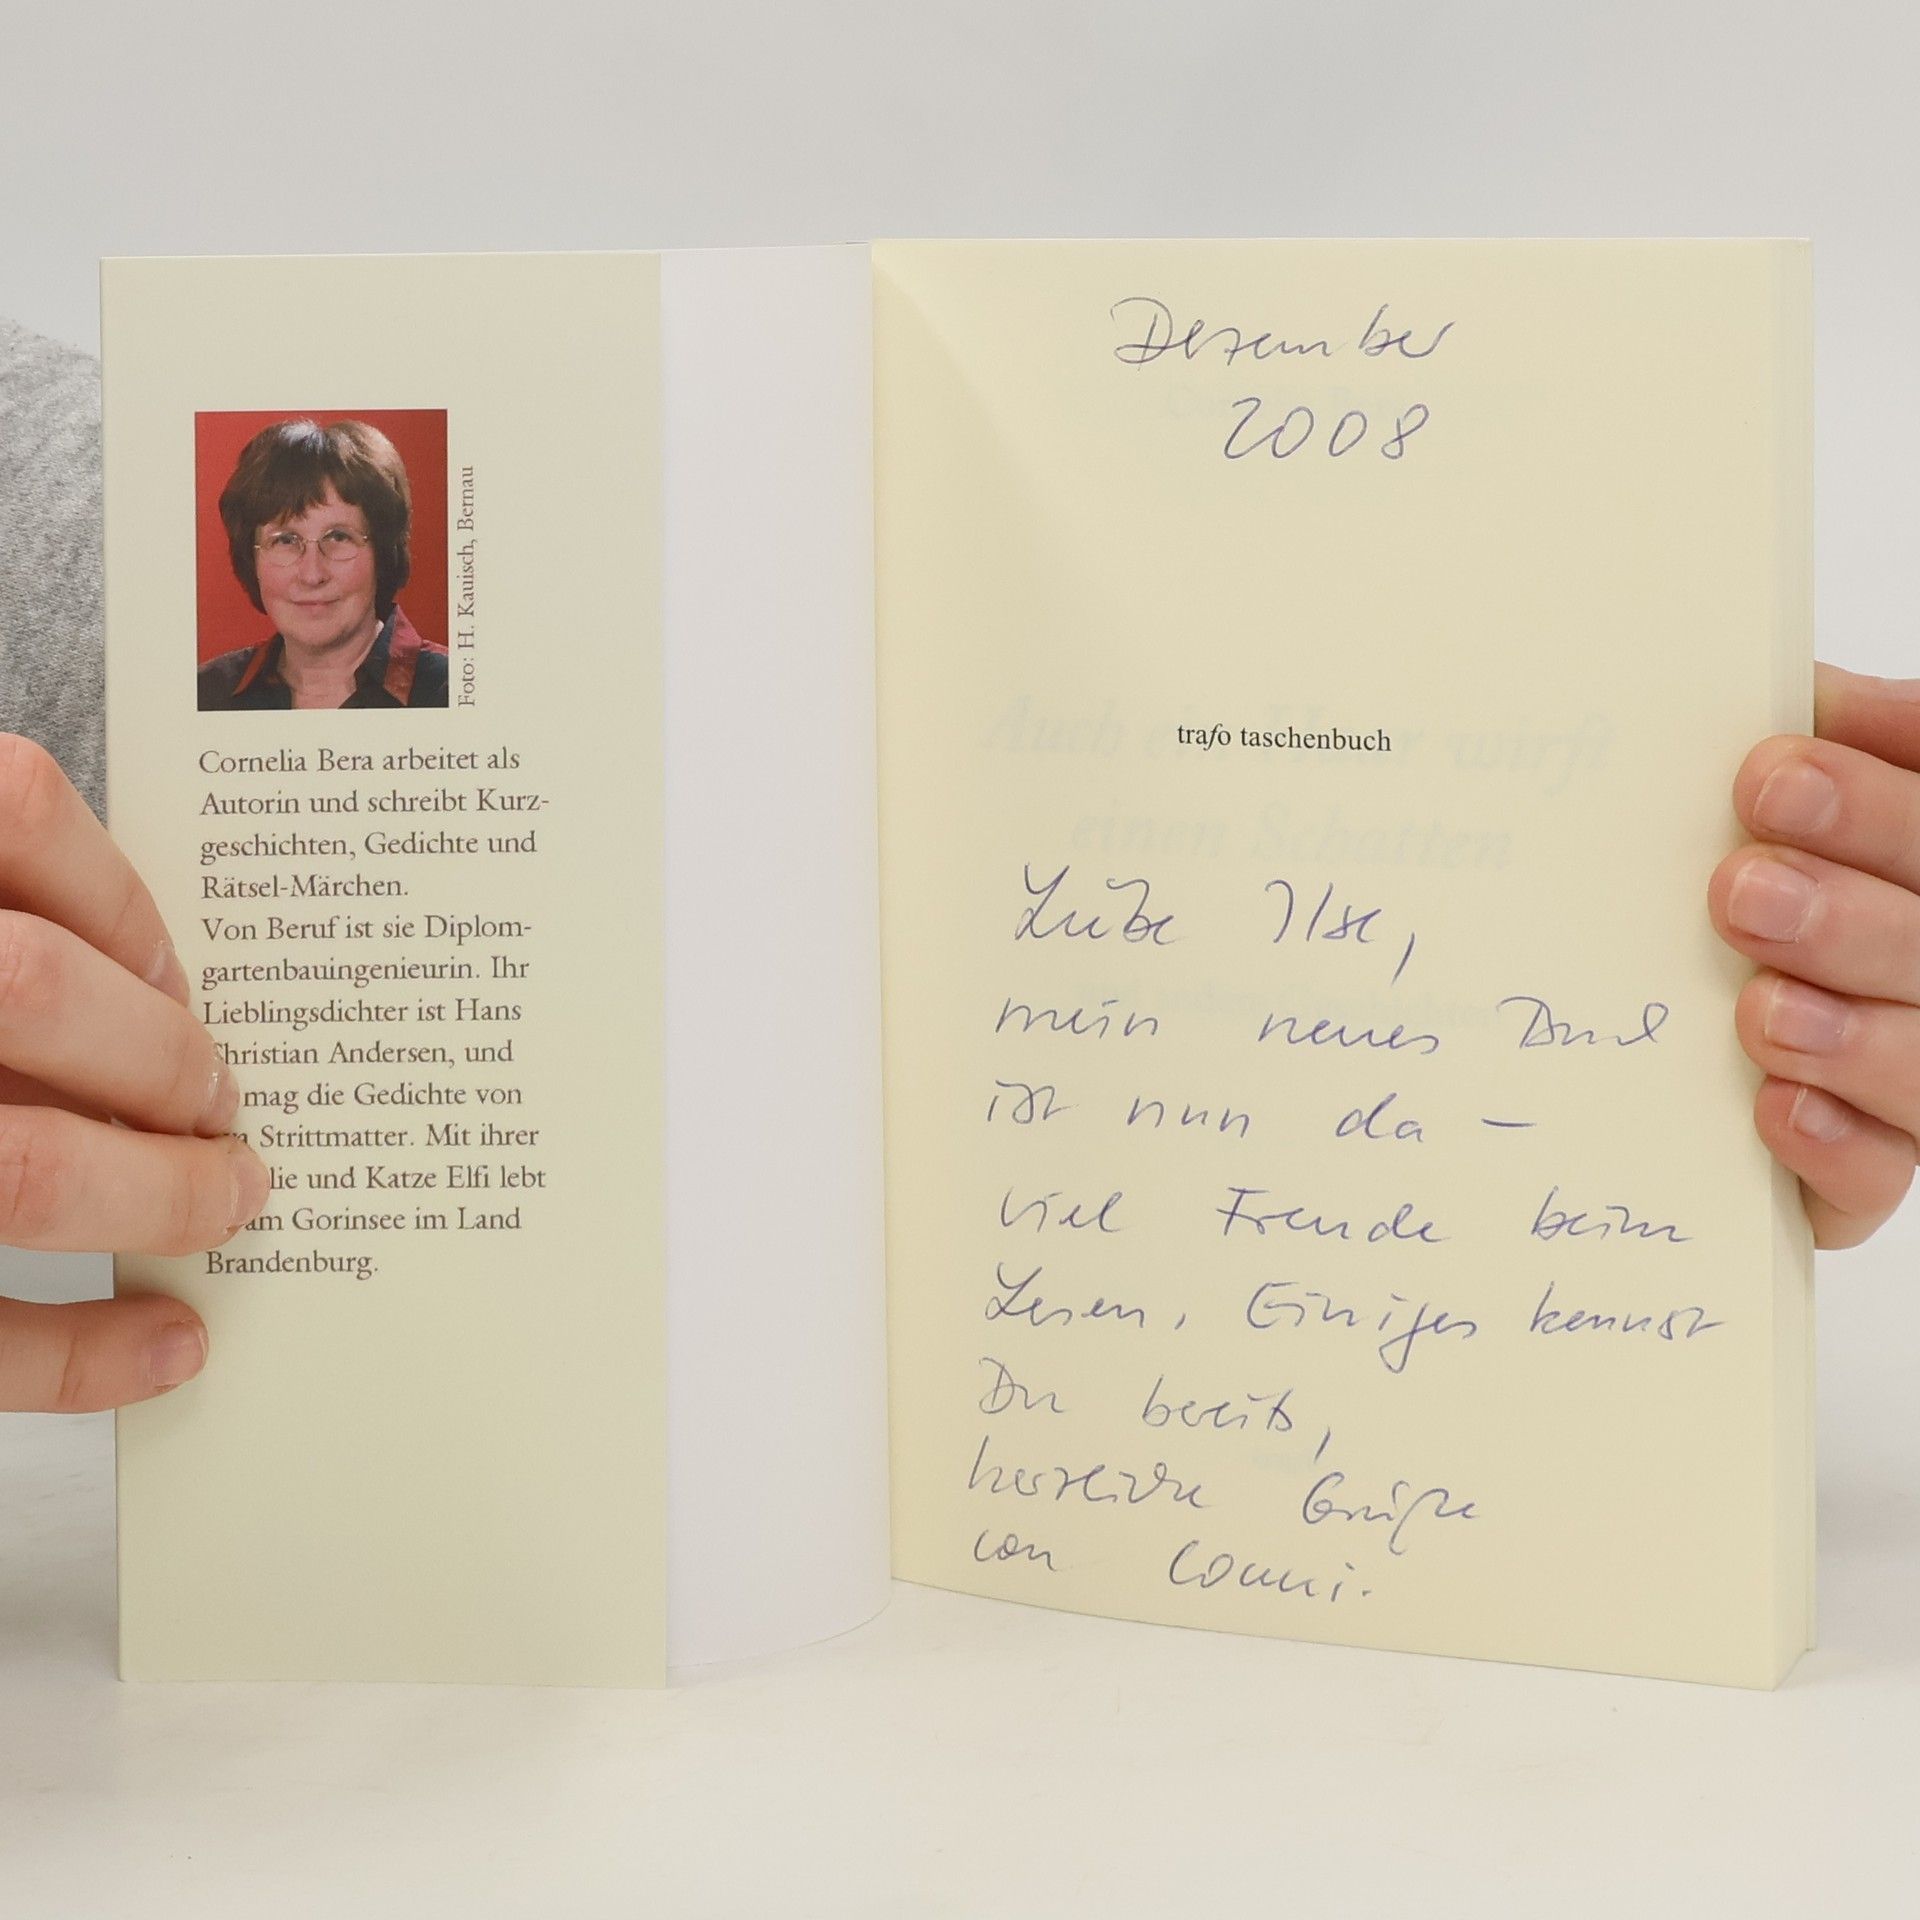 Foto: H. Kauisch, Bernau
Cornelia Bera arbeitet als
Autorin und schreibt Kurz-
geschichten, Gedichte und
Rätsel-Märchen.
Von Beruf ist sie Diplom-
gartenbauingenieurin. Ihr
Lieblingsdichter ist Hans
Christian Andersen, und
mag die Gedichte von
Strittmatter. Mit ihrer
lie und Katze Elfi lebt
am Gorinsee im Land
Brandenburg.
Dezember
2008
trafo taschenbuch
Auch ein Haar wirft
einen Schatten
Liebe Ilse,
mein neues Buch
ist nun da –
viel Freude beim
Lesen. Einiges kennst
Du bereits,
herzliche Grüße
von Conni.